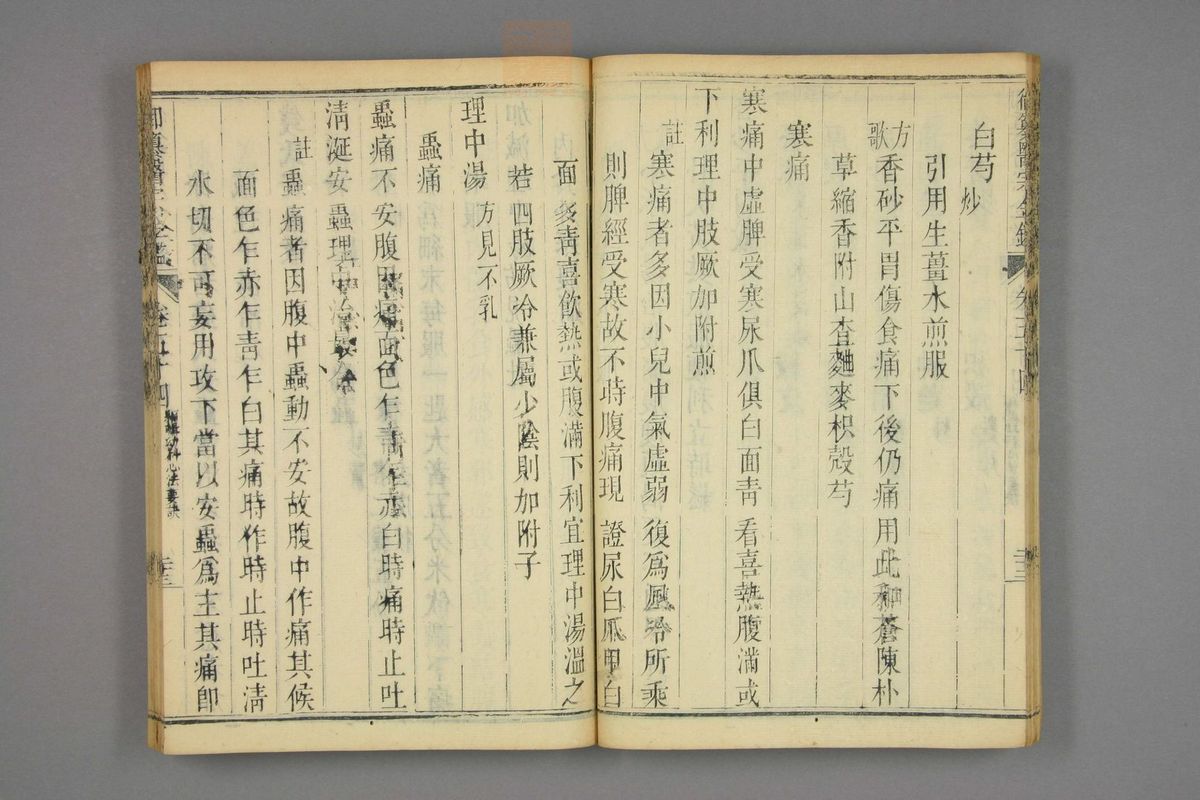 白芍炒
引用生薑水煎服
方歌香砂平胃傷食痛下後仍痛用此和蒼陳朴
草縮香附山查麯麥枳殼芍
寒痛
寒痛中虛脾受寒尿瓜俱白面青看喜熱腹滿或
下利理中肢厥加附煎
註寒痛者多因小兒中氣虛弱復為風冷所乘
則脾經受寒故不時腹痛現證尿白瓜甲白
面多青喜飲熱或腹滿下利宜理中湯溫之
若四肢厥冷兼屬少陰則加附子
理中湯方見不乳
蟲痛
蟲痛不安腹因痛面色乍青乍赤白時痛時止吐
清涎安蟲理中治
註蟲痛者因腹中蟲動不安故腹中作痛其候
面色乍赤乍青乍白其痛時作時止時吐清
水切不可妄用攻下當以安蟲為主其痛即
御纂醫宗金鑑 卷五十四 幼科心法要訣